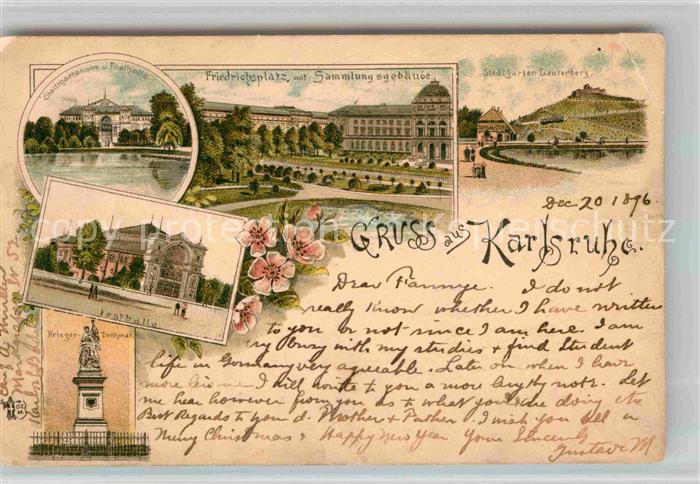 Stadtgartensee u. Festhalle.
Friedrichsplatz, mit Sammlungsgebäude.
Stadtgarten Lauterberg.
Dec 20 1896.
Gruss aus Karlsruhe.
Festhalle
Krieger-Denkmal.
Dear Fannye. I do not
really know whether I have written
to you or not since I am here. I am
very busy with my studies & find Student
life in Germany very agreeable. Later on when I have
more leisure I will write to you a more lengthy note. Let
me hear however from you as to what you are doing etc
Best Regards to your d. Mother & Father. I wish you all a
Merry Christmas & Happy New Year Yours Sincerely
Gustave M.
copyright picture